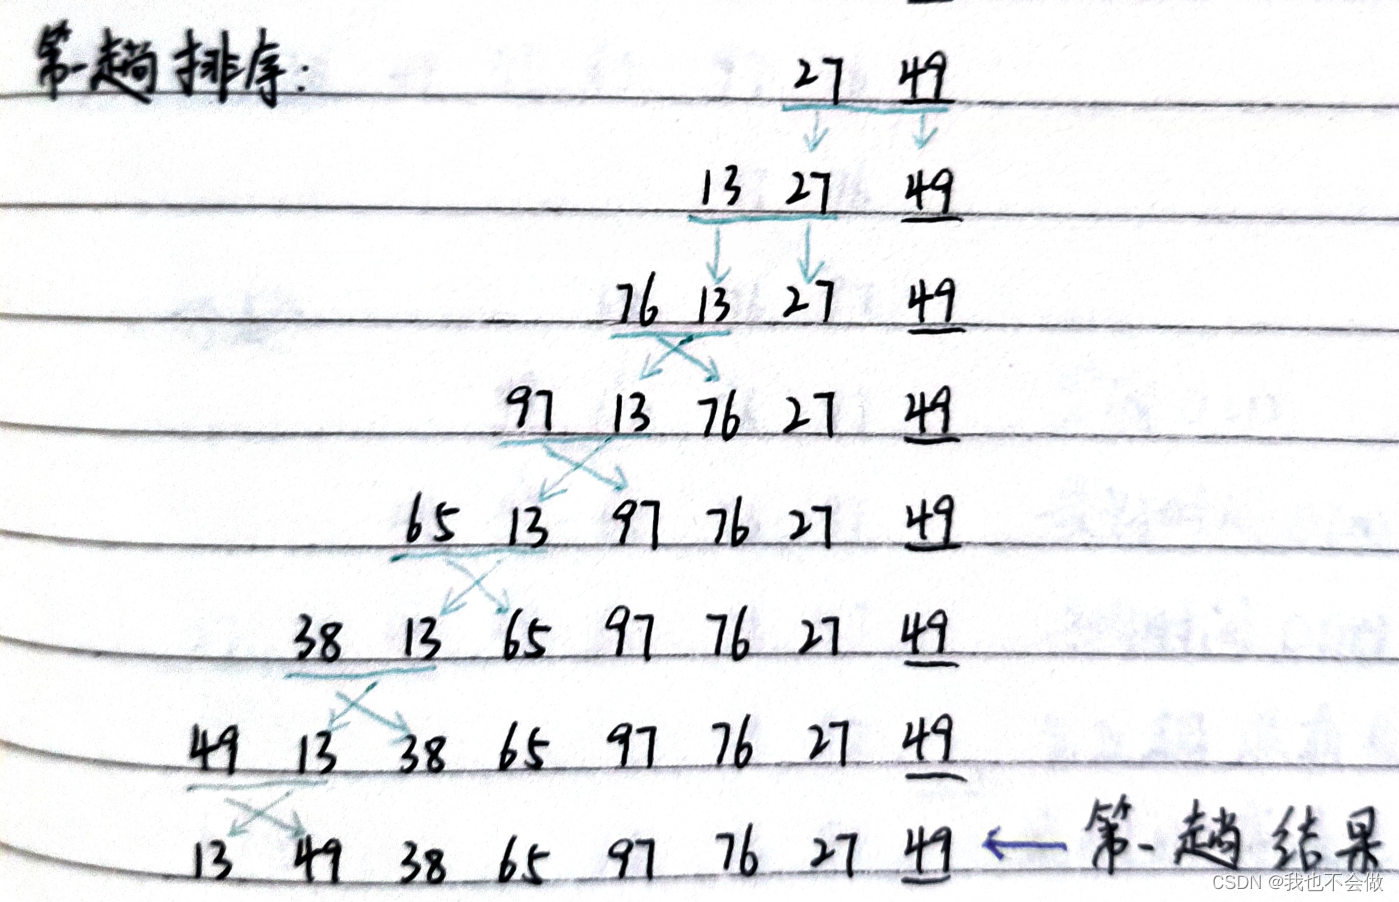 第一趟排序: 27 49
13 27 49
76 13 27 49
97 13 76 27 49
65 13 97 76 27 49
38 13 65 97 76 27 49
49 13 38 65 97 76 27 49
13 49 38 65 97 76 27 49 ← 第一趟结果
CSDN @我也不会做